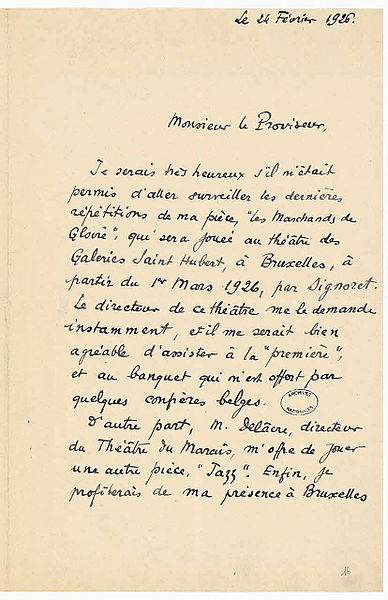 Le 24 Février 1926.
Monsieur le Proviseur,
Je serais très heureux s'il m'était
permis d'aller surveiller les dernières
répétitions de ma pièce, "les Marchands de
Gloire", qui sera jouée au théâtre des
Galeries Saint Hubert, à Bruxelles, à
partir du 1er Mars 1926, par Signoret.
Le directeur de ce théâtre me le demande
instamment, et il me serait bien
agréable d'assister à la "première",
et au banquet qui m'est offert par
quelques confrères belges.
ARCHIVES
NATIONALES
D'autre part, M. Delacre, directeur
du Théâtre du Marais, m'offre de jouer
une autre pièce, "Jazz". Enfin, je
profiterais de ma présence à Bruxelles
16